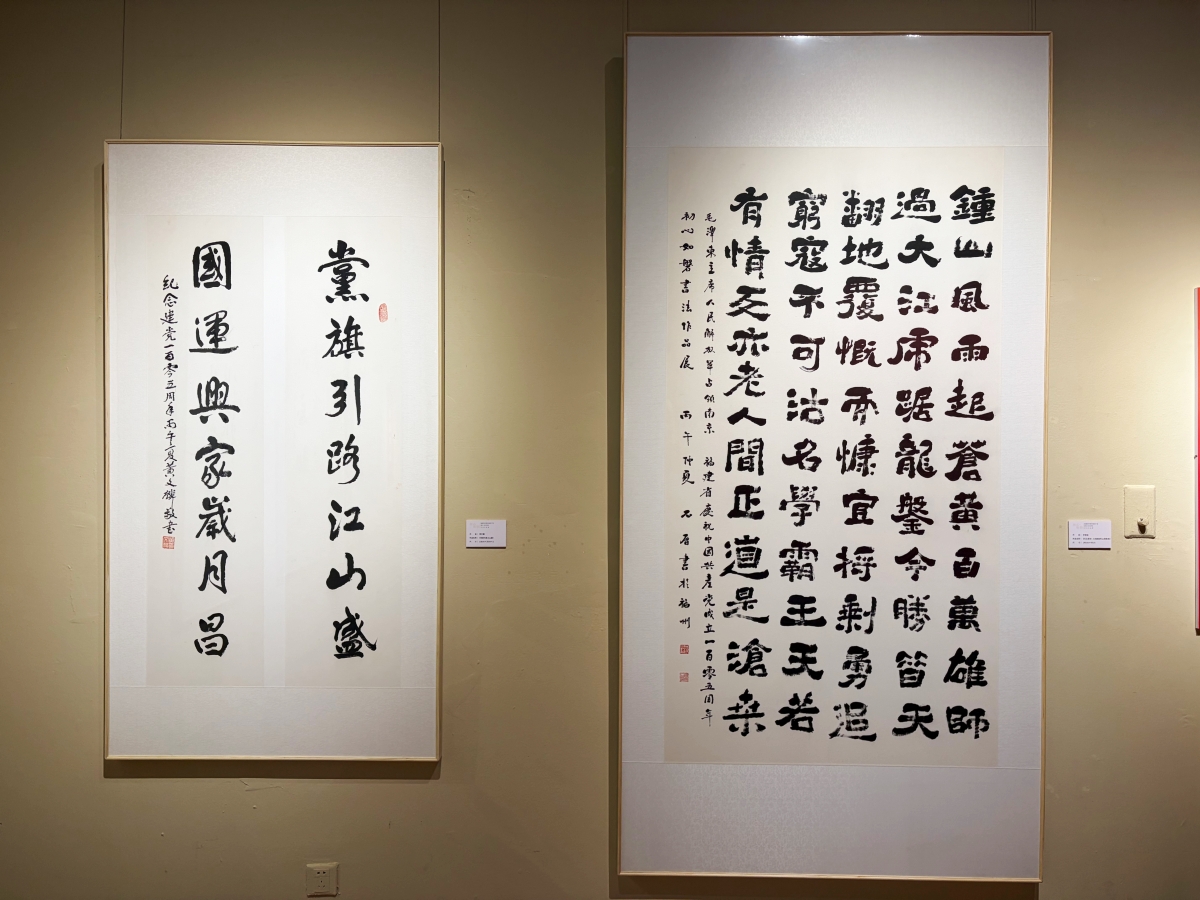 黨旗引路江山盛
國運興家歲月昌
紀念建党一百零五周年丙午夏黄文敬書
鍾山風雨起蒼黄百萬雄師
過大江虎踞龍盤今勝昔天
翻地覆慨而慷宜将剩勇追
窮寇不可沽名學霸王天若
有情天亦老人間正道是滄桒
毛澤東主席人民解放軍占領南京 福建省慶祝中国共産党成立一百零五周年
初心如磐書法作品展 丙午仲夏 書於福州